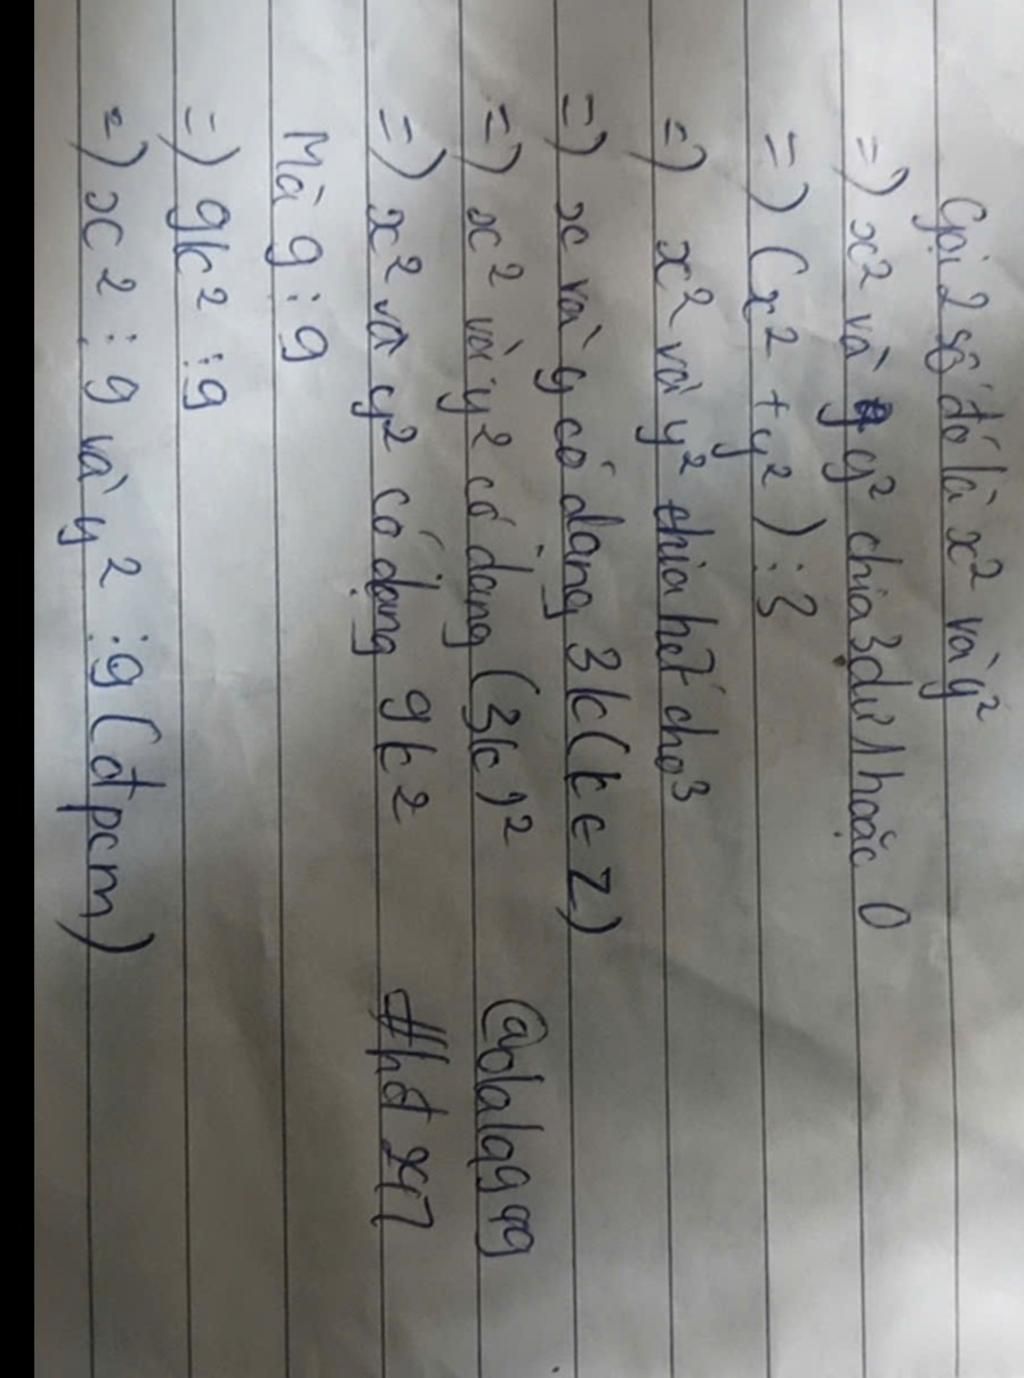 Gọi 2 số đó là x² và y²
=) x² và y² chia 3 dư 1 hoặc 0
=) (x² + y²) ⋮ 3
=) x² và y² chia hết cho 3
=) x và y có dạng 3k (k ∈ Z)
=) x² và y² có dạng (3k)² @olalagg
=) x² và y² có dạng 9k² #hđ247
Mà 9 ⋮ 9
=) 9k² ⋮ 9
=) x² ⋮ 9 và y² ⋮ 9 (đpcm)